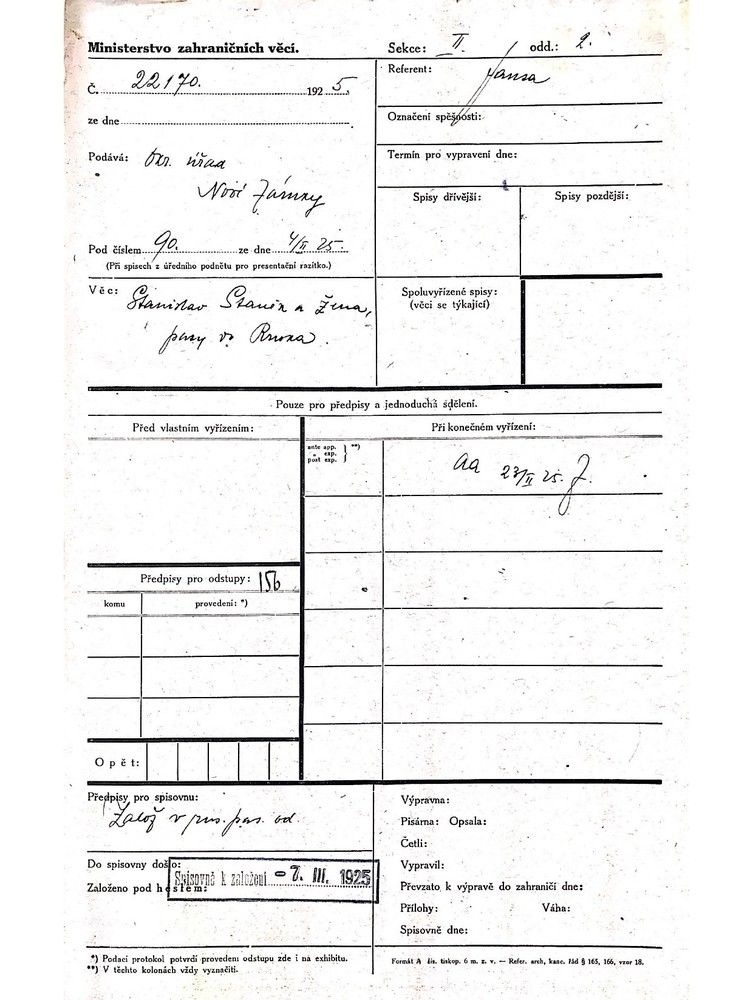 Ministerstvo zahraničních věcí.
Sekce: II. odd.: 2.
Č. 22170. 1925.
Referent: Jansa
ze dne
Označení spěšnosti:
Podává: Okr. úřad
Nové Zámky
Termín pro vypravení dne:
Spisy dřívější:
Spisy pozdější:
Pod číslem 90. ze dne 4/II 25.
(Při spisech z úředního podnětu pro presentační razítko.)
Věc: Stanislav a žena,
pasy do
Spoluvyřízené spisy:
(věci se týkající)
Pouze pro předpisy a jednoduchá sdělení.
Před vlastním vyřízením:
Při konečném vyřízení:
ante app.
„ exp.
post exp. } **)
aa 23/II 25. J.
Předpisy pro odstupy: 156
komu
provedení: *)
Opět:
Předpisy pro spisovnu:
Založ v rus. pas. od.
Do spisovny došlo:
Založeno pod heslem:
Spisovně k založení - 7. III. 1925
Výpravna:
Pisárna: Opsala:
Četli:
Vypravil:
Převzato k výpravě do zahraničí dne:
Přílohy: Váha:
Spisovně dne:
*) Podací protokol potvrdí provedení odstupu zde i na exhibitu.
**) V těchto kolonách vždy vyznačiti.
Formát A čís. tiskop. 6 m. z. v. — Refer. arch, kanc. řád § 165, 166, vzor 18.